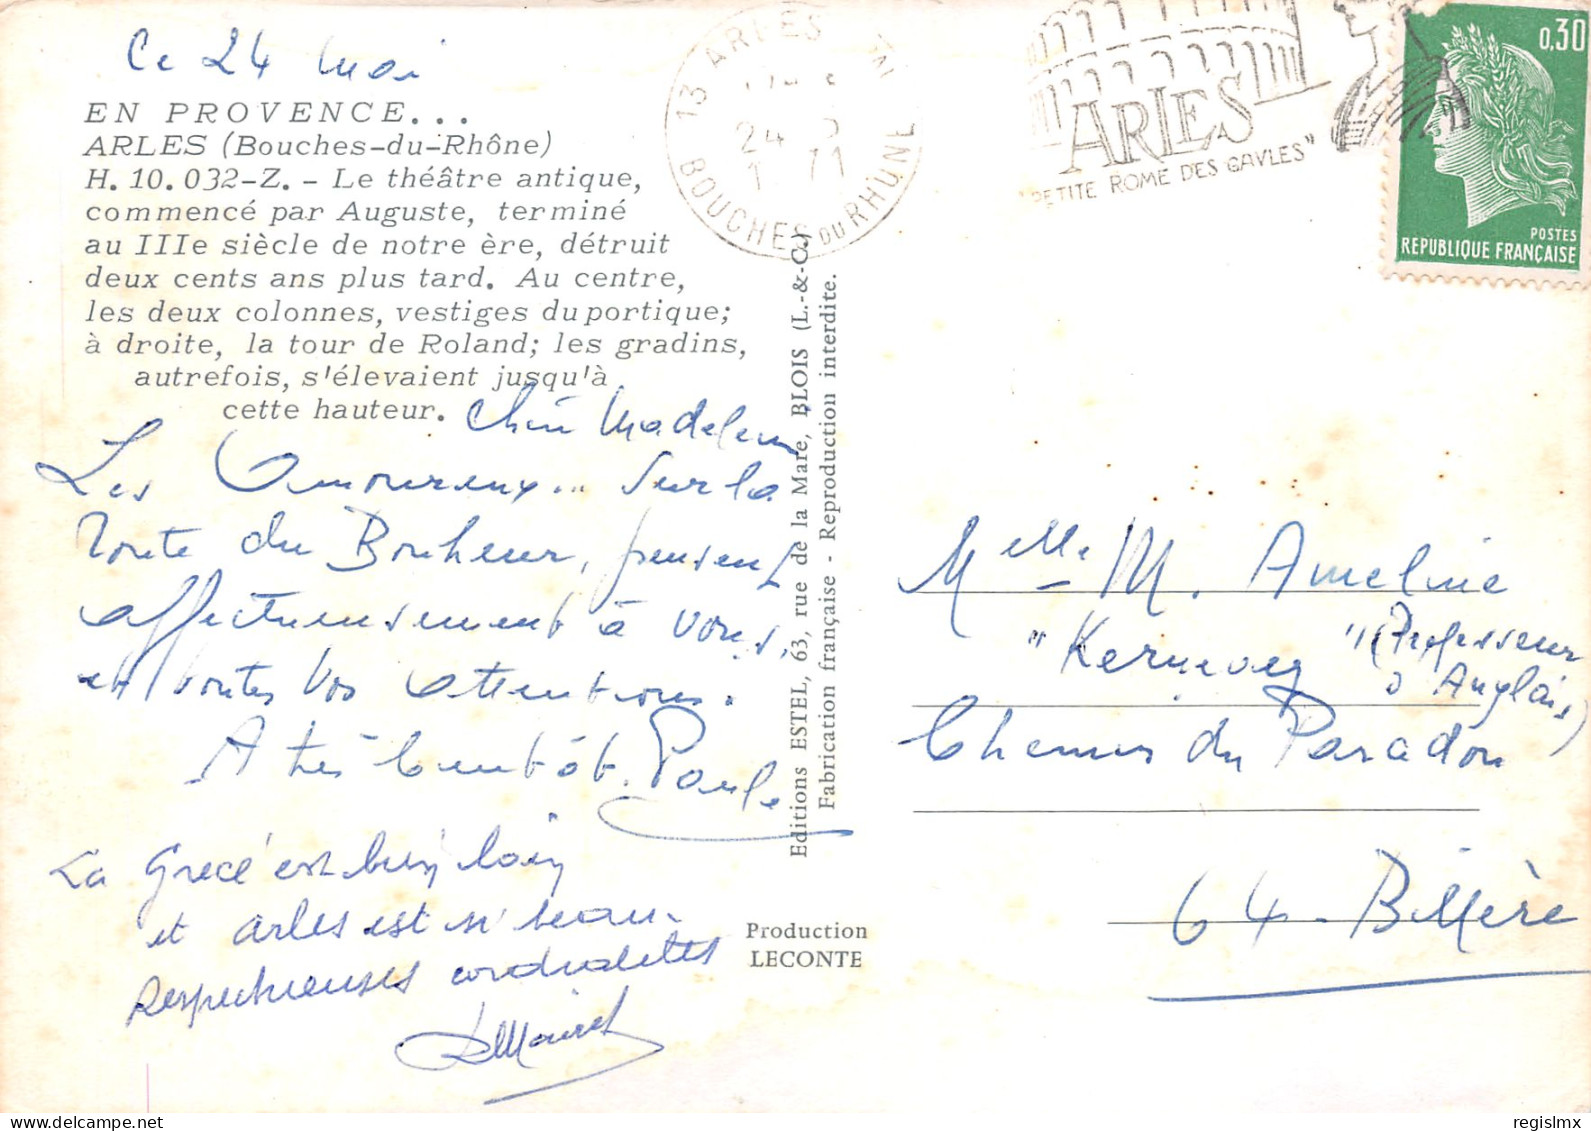 Ce 24 Mai
EN PROVENCE...
ARLES (Bouches-du-Rhône)
H. 10.032-Z. - Le théâtre antique,
commencé par Auguste, terminé
au IIIe siècle de notre ère, détruit
deux cents ans plus tard. Au centre,
les deux colonnes, vestiges du portique;
à droite, la tour de Roland; les gradins,
autrefois, s'élevaient jusqu'à
cette hauteur.
Chère Madeleine
Les Amoureux... sur la
route du Bonheur, pensent
affectueusement à vous,
et toutes vos attentions.
A très bientôt. Paule
La Grèce est bien loin
et Arles est si beau.
Respectueuses cordialités
Editions ESTEL, 63, rue de la Mare, BLOIS (L.-&-C.)
Fabrication française - Reproduction interdite.
Production
LECONTE
13 ARLES
24 5
1 71
BOUCHES DU RHÔNE
ARLES
"PETITE ROME DES GAULES"
0,30
POSTES
REPUBLIQUE FRANÇAISE
Melle M. Ameline
"Kernevey" (Professeur
d'Anglais)
Chemin du Paradou
64 - Billère
regislmx